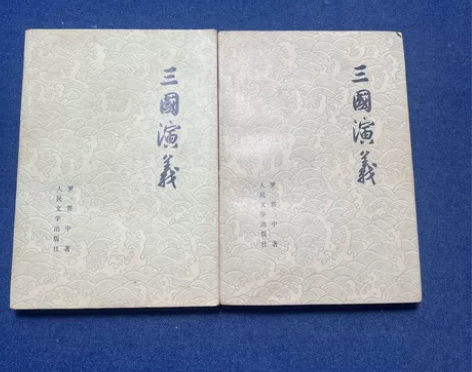 三國演義
罗贯中著
人民文学出版社
三國演義
罗贯中著
人民文学出版社